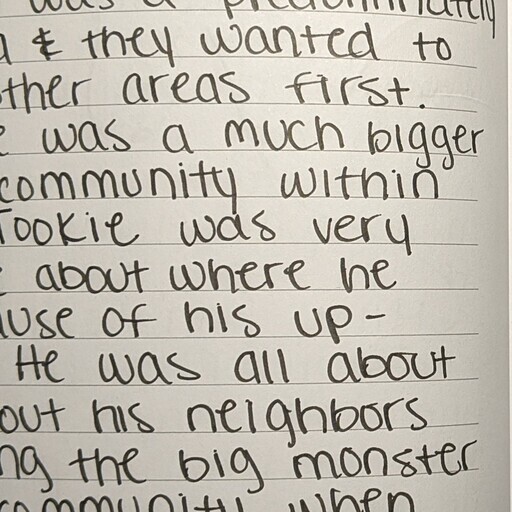 was a predominately
& they wanted to
other areas first.
was a much bigger
community within
Tookie was very
about where he
use of his up-
He was all about
out his neighbors
ng the big monster
community when